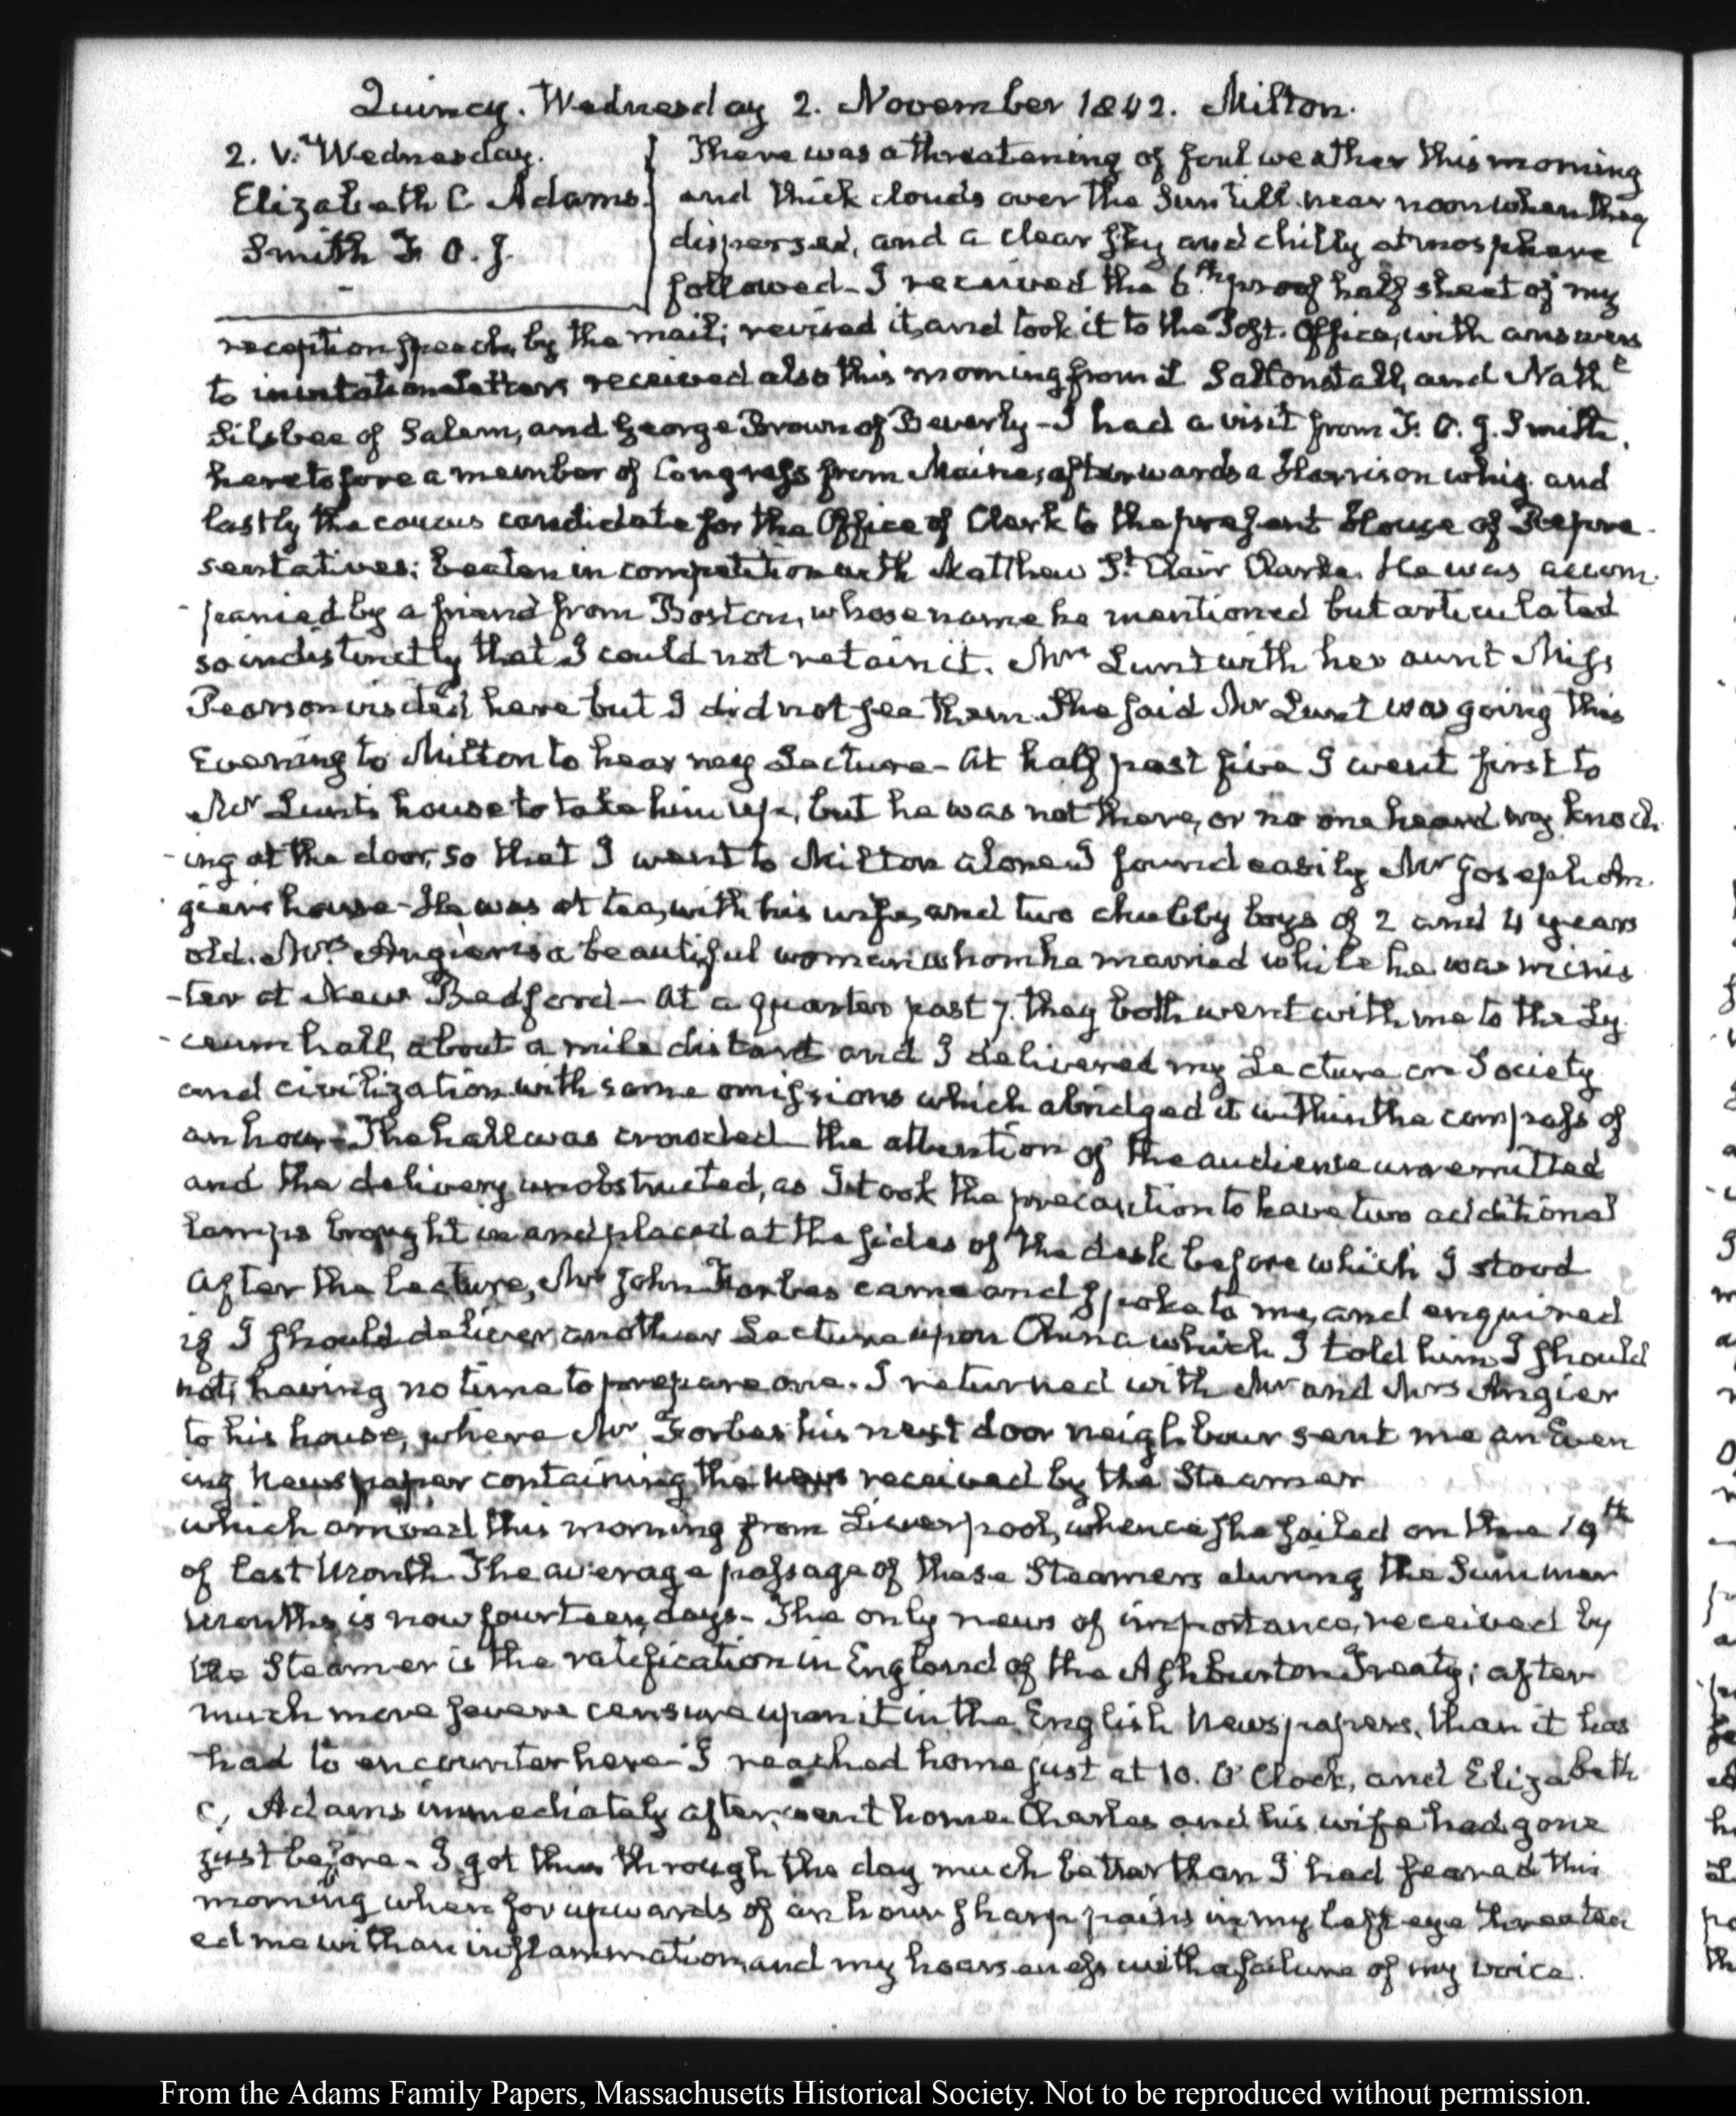 Quincy. Wednesday 2. November 1842. Milton.
2. V. Wednesday.
Elizabeth C Adams.
Smith F. O. J.
There was a threatening of foul weather this morning
and thick clouds over the Sun till near noon when they
dispersed, and a clear sky and chilly atmosphere
followed— I received the 6th proof half sheet of my
reception speech, by the mail; revised it, and took it to the Post-Office, with answers
to invitation Letters received also this morning from L Saltonstall, and Nathl
Silsbee of Salem, and George Brown of Beverly— I had a visit from F. O. J. Smith,
heretofore a member of Congress from Maine, afterwards a Harrison whig and
lastly the caucus candidate for the Office of Clerk to the present House of Repre-
sentatives; beaten in competition with Matthew St. Clair Clarke. He was accom-
-panied by a friend from Boston, whose name he mentioned but articulated
so indistinctly that I could not retain it. Mrs Lunt with her aunt Miss
Pearson visited here but I did not see them. She said Mr Lunt was going this
Evening to Milton to hear my Lecture— At half past five I went first to
Mr Lunt's house to take him up, but he was not there, or no one heard my knock-
-ing at the door, so that I went to Milton alone. I found easily Mr Joseph An-
giers house— He was at tea, with his wife, and two chubby boys of 2 and 4 years
old. Mrs Angier is a beautiful woman whom he married while he was minis-
-ter at New Bedford— At a quarter past 7. they both went with me to the Ly-
-ceum hall, about a mile distant and I delivered my Lecture on Society
and civilization with some omissions which abridged it within the compass of
an hour— The hall was crowded the attention of the audience unremitted
and the delivery unobstructed, as I took the precaution to have two additional
lamps brought in and placed at the sides of the desk before which I stood
After the lecture, Mr John Forbes came and spoke to me, and enquired
if I should deliver another Lecture upon China which I told him I should
not; having no time to prepare one. I returned with Mr and Mrs Angier
to his house, where Mr Forbes his next door neighbour sent me an Even
ing newspaper containing the news received by the Steamer
which arrived this morning from Liverpool, whence she sailed on the 19th
of last Month. The average passage of these Steamers during the Summer
Months is now fourteen days— The only news of importance, received by
the Steamer is the ratification in England of the Ashburton Treaty; after
much more severe censure upon it in the English Newspapers, than it has
had to encounter here— I reached home just at 10. O'Clock, and Elizabeth
C. Adams immediately after, went home. Charles and his wife had gone
just before— I got thus through the day much better than I had feared this
morning when for upwards of an hour sharp pains in my left eye threaten
ed me with an inflammation, and my hoarseness with a failure of my voice.
From the Adams Family Papers, Massachusetts Historical Society. Not to be reproduced without permission.